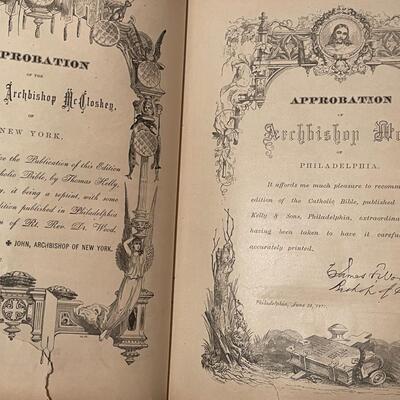 PROBATION
OF THE
Archbishop McCloskey,
OF
NEW YORK.
the Publication of this Edition
Catholic Bible, by Thomas Kelly,
it being a reprint, with some
edition published in Philadelphia
of Rt. Rev. Dr. Wood.
✠ JOHN, ARCHBISHOP OF NEW YORK.
APPROBATION
OF
Archbishop Wo
OF
PHILADELPHIA.
It affords me much pleasure to recomm
edition of the Catholic Bible, published
Kelly & Sons, Philadelphia, extraordina
having been taken to have it carefu
accurately printed.
James F. Wo
Bishop of
Philadelphia, June 22,